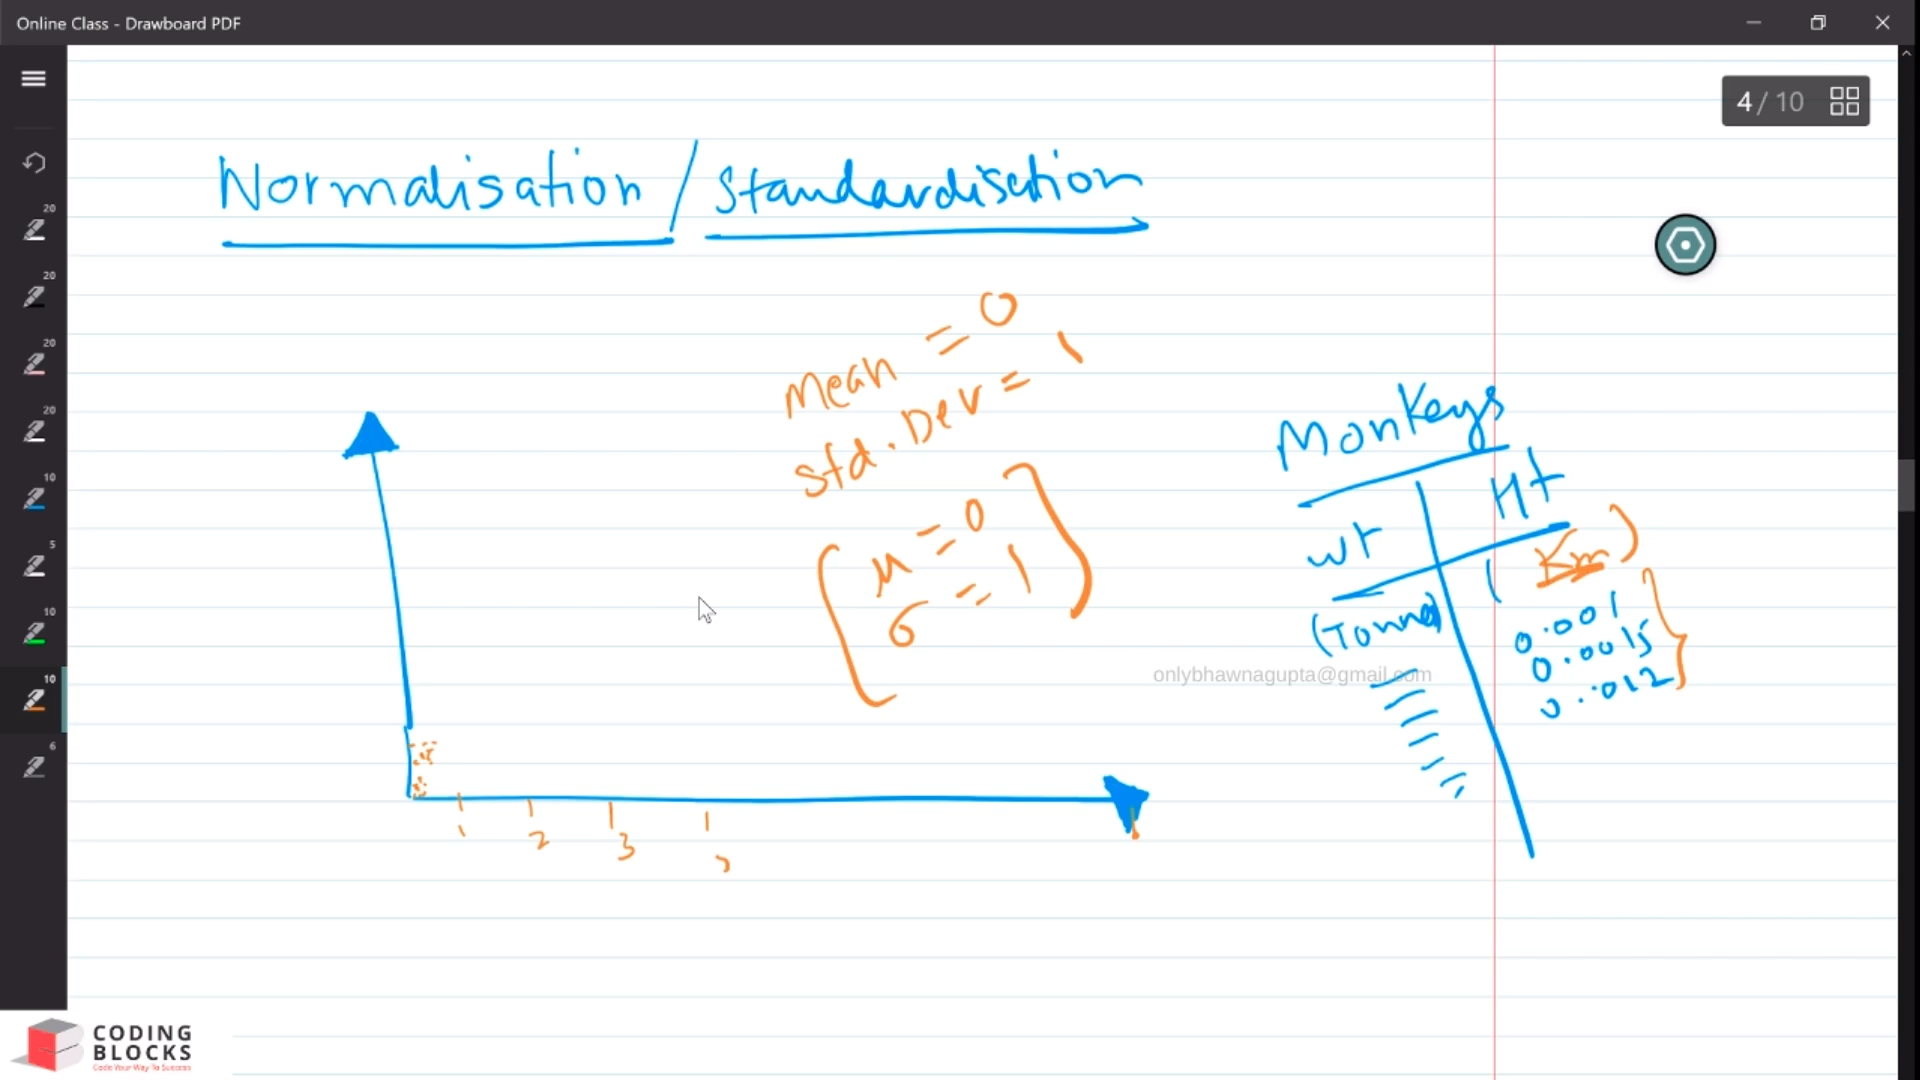 Online Class - Drawboard PDF
4 / 10
20
20
20
20
10
5
10
10
6
Normalisation / Standardisation
Mean = 0
std. Dev = 1
μ = 0
σ = 1
Monkeys
wt Ht
(Tonne) (Km)
0.001
0.0015
0.012
onlybhawnagupta@gmail.com
1 2 3
CODING
BLOCKS
Code Your Way To Success